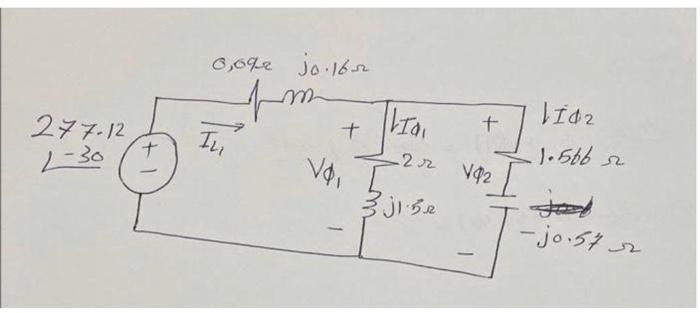 0,09Ω j0.16Ω
277.12
∠-30
+
-
IL1
+
Vφ1
-
Iφ1
2Ω
j1.5Ω
+
Vφ2
-
Iφ2
1.566 Ω
-j0.57 Ω